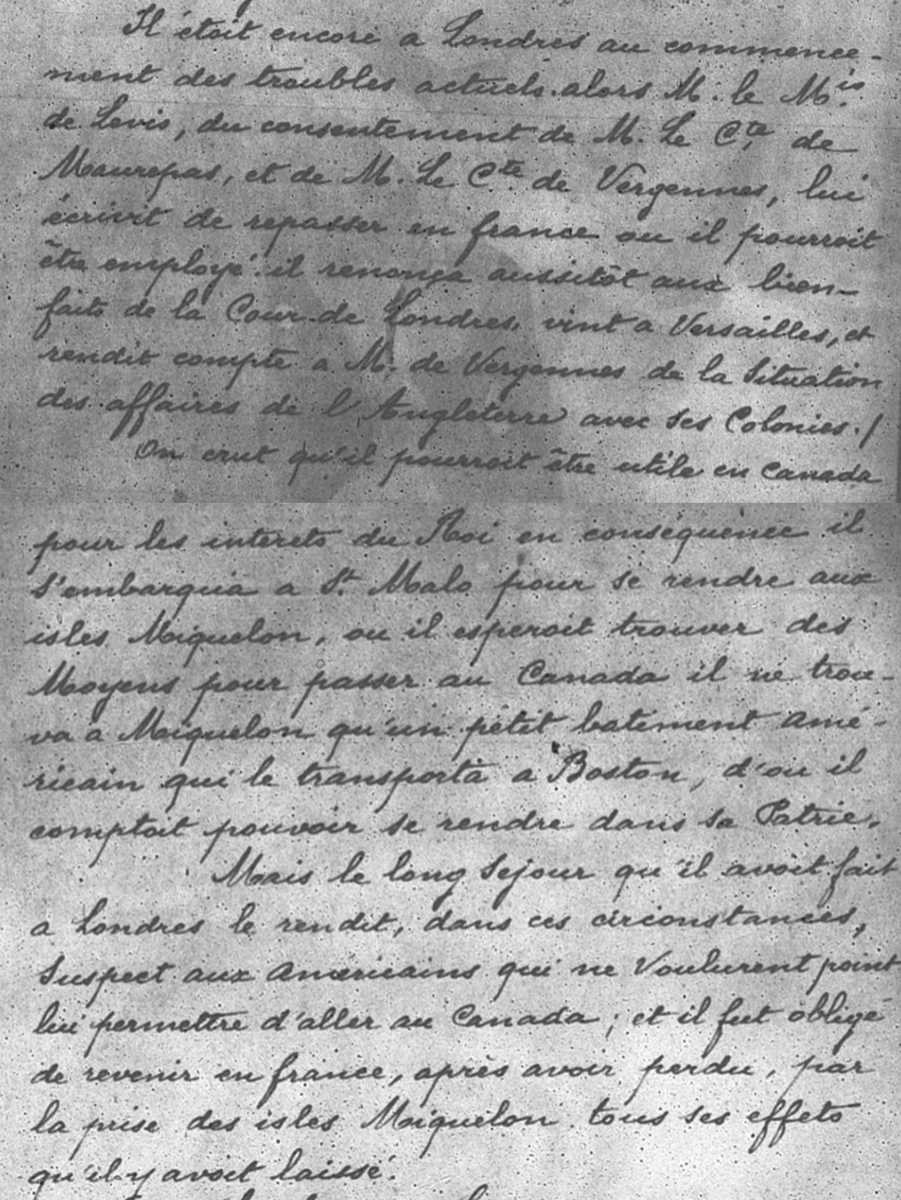 Il étoit encore a Londres au commence-
ment des troubles actuels. alors M. le M.is
de Levis, du consentement de M. Le C.te de
Maurepas, et de M. Le Cte de Vergennes, lui
écrivit de repasser en france ou il pourroit
être employé. il renonça aussitôt aux bien-
faits de la Cour de Londres, vint a Versailles, et
rendit compte a M. de Vergennes de la Situation
des affaires de l'Angleterre avec ses Colonies./
On crut qu'il pourroit être utile en Canada
pour les interets du Roi en conséquence il
s'embarqua a St. Malo pour se rendre aux
isles Miquelon, ou il esperoit trouver des
Moyens pour passer au Canada il ne trou-
va a Miquelon qu'un petit batiment amé-
ricain qui le transporta a Boston, d'ou il
comptoit pouvoir se rendre dans sa Patrie.
Mais le long Sejour qu'il avoit fait
a Londres le rendit, dans ces circonstances,
Suspect aux Americains qui ne Voulurent point
lui permettre d'aller au Canada ; et il fut obligé
de revenir en france, après avoir perdu, par
la prise des isles Miquelon tous ses effets
qu'il y avoit laissé.